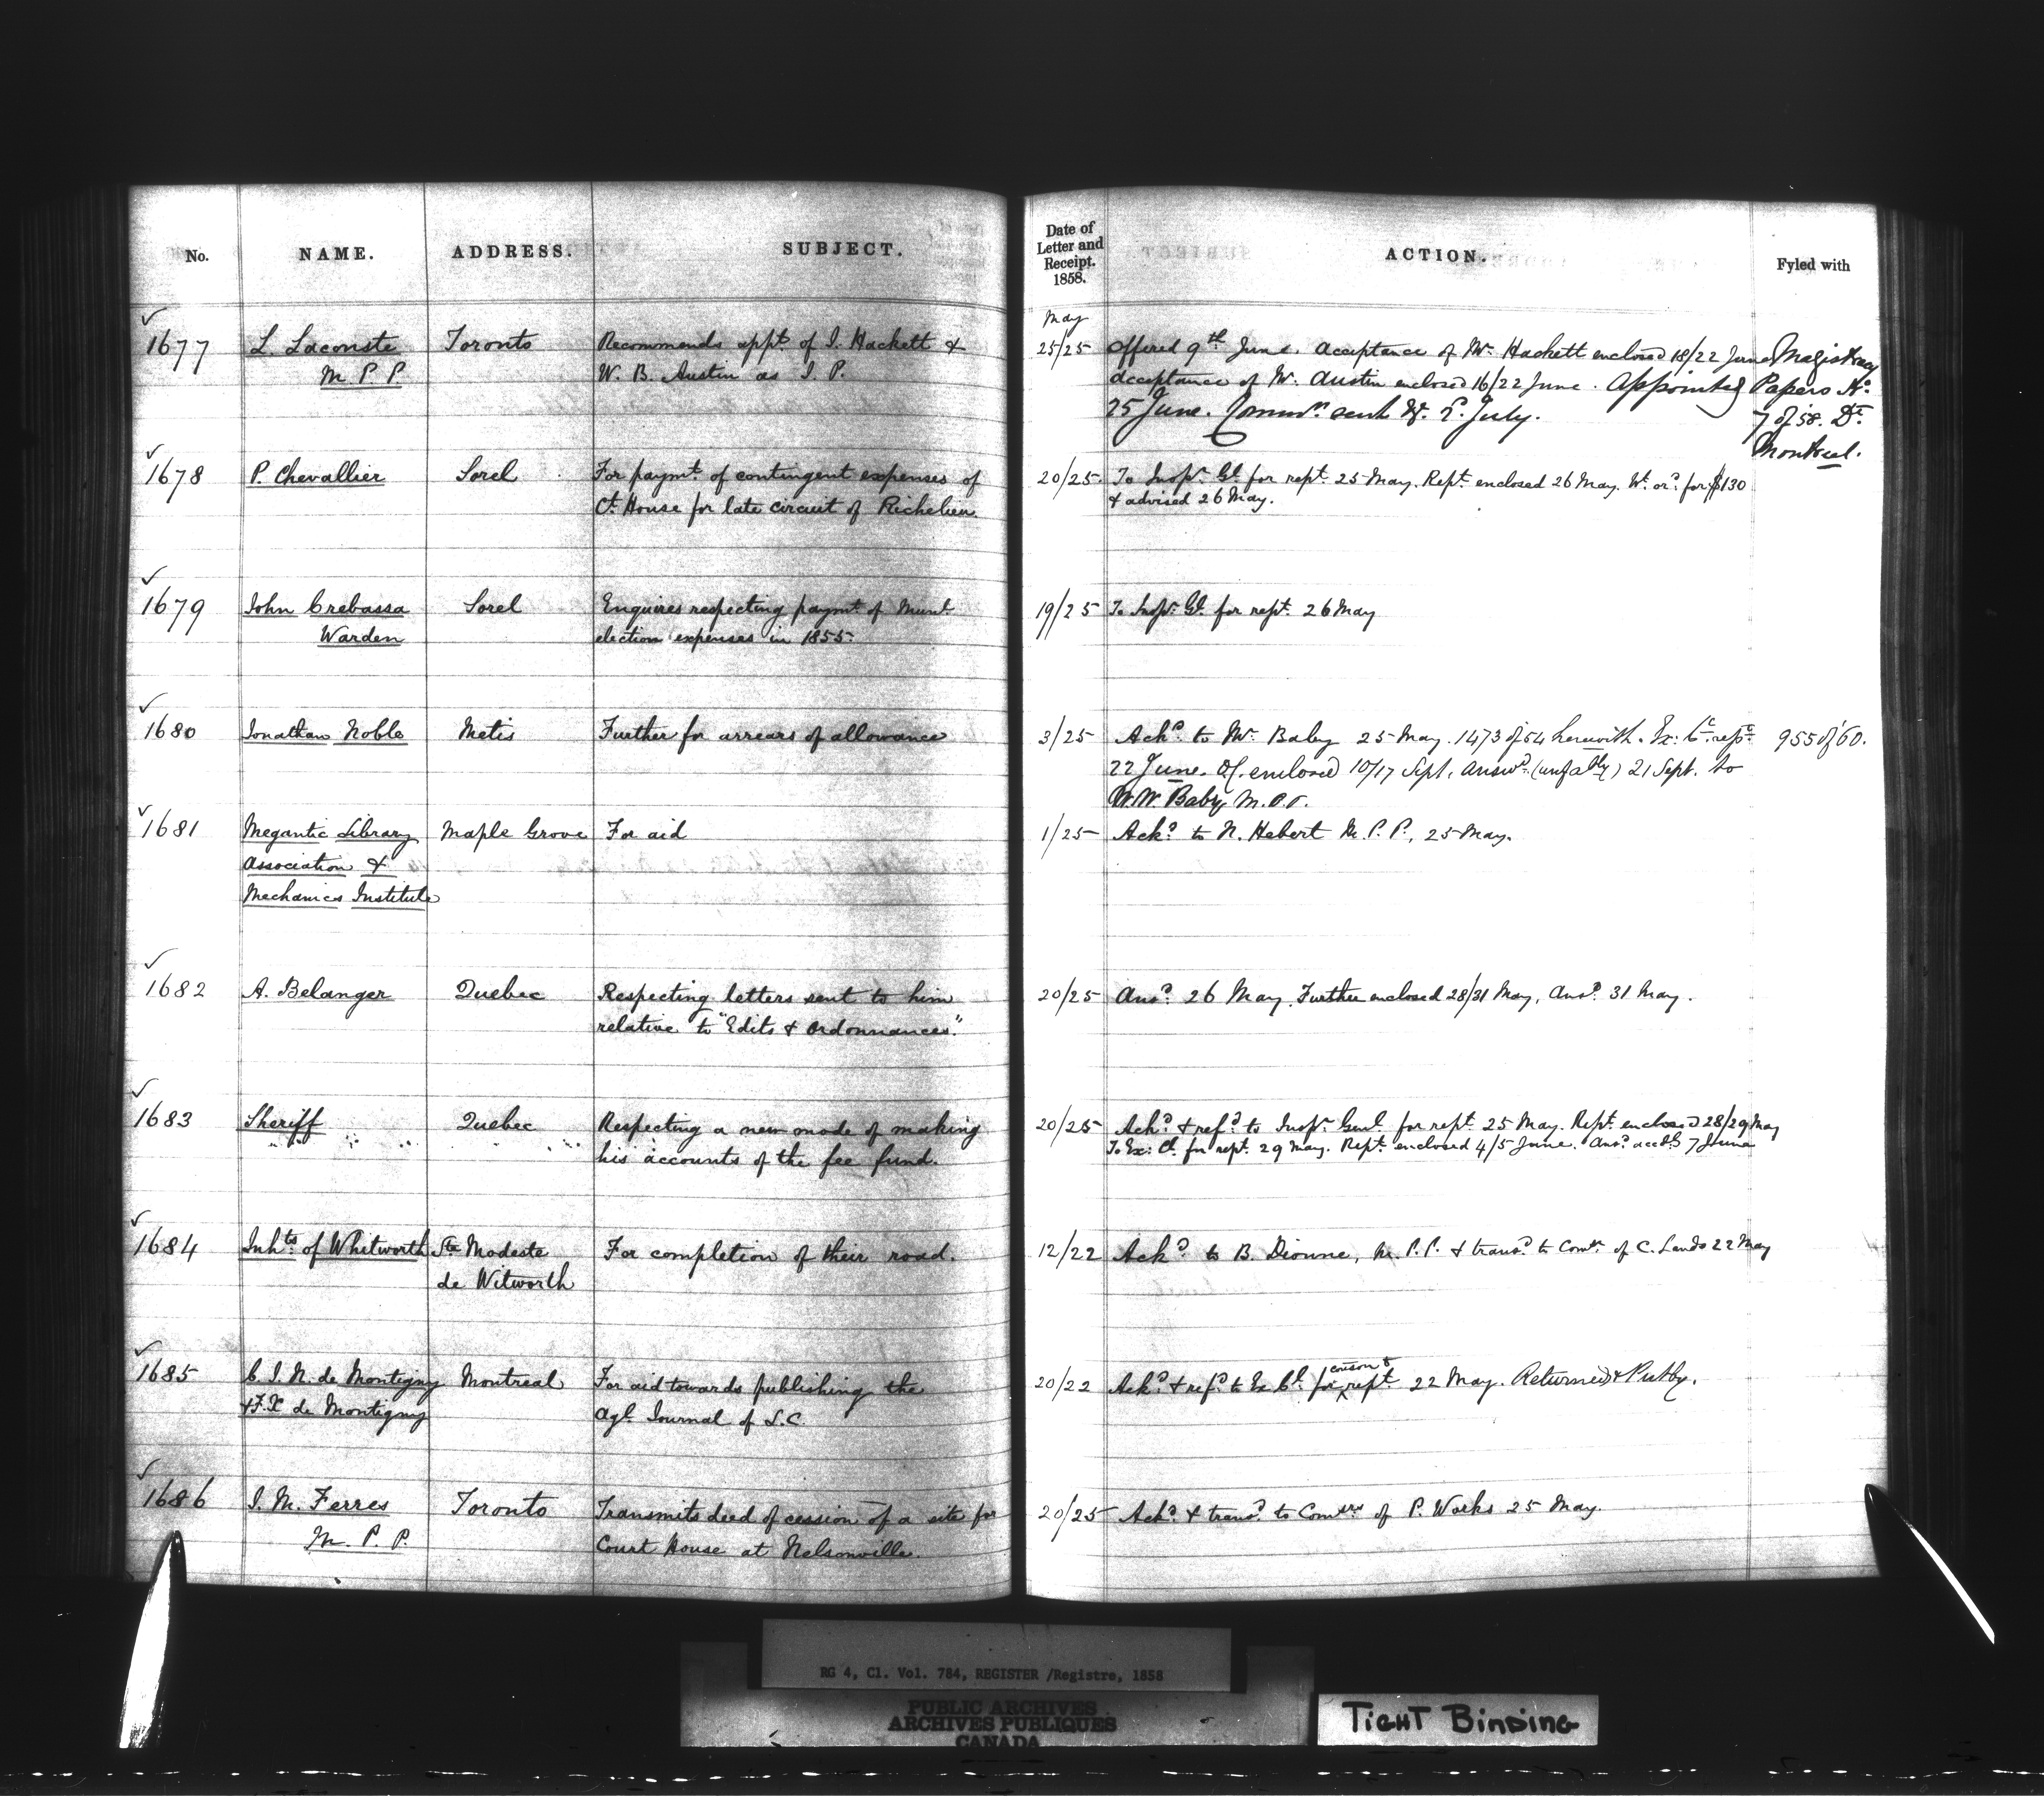 No. NAME. ADDRESS. SUBJECT.
Date of Letter and Receipt. 1858. ACTION. Fyled with
May
1677 L. Lacoste Toronto Recommends appt. of I. Hackett &
M. P. P. W. B. Austin as J. P.
25/25 Offered 9th June. Acceptance of Mr. Hackett enclosed 18/22 June Magistracy
Acceptance of Mr. Austin enclosed 16/22 June. Appointed Papers No.
25 June. sent July. 7 of 58. Dt.
Montreal.
1678 P. Chevallier Sorel For paymt. of contingent expenses of
Ct. House for late circuit of Richelieu
20/25 To Inspr. Gl. for rept. 25 May. Rept. enclosed 26 May. Wt. ord. for $130
& advised 26 May.
1679 John Crebassa Sorel Enquires respecting paymt. of Munl.
Warden election expenses in 1855.
19/25 To Inspr. Gl. for rept. 26 May
1680 Jonathan Noble Metis Further for arrears of allowance
3/25 Ackd. to Mr. Baby 25 May. 1473 of 54 herewith. Ex: Cl. rept. 955 of 60.
22 June. enclosed 10/17 Sept. Answd. (unfably) 21 Sept. to
W. W. Baby M. P. P.
1681 Megantic Library Maple Grove For aid
Association &
Mechanics Institute
1/25 Ackd. to N. Hebert M. P. P. 25 May.
1682 A. Belanger Quebec Respecting letters sent to him
relative to "Edits & Ordonnances."
20/25 Ansd. 26 May. Further enclosed 28/31 May, Ansd. 31 May.
1683 Sheriff Quebec Respecting a new mode of making
his accounts of the fee fund.
20/25 Ackd. & refd. to Inspr. Genl. for rept. 25 May. Rept. enclosed 28/29 May
To Ex: Cl. for rept. 29 May. Rept. enclosed 4/5 June. Ansd. accdly 7 June
1684 Inhts. of Whitworth Ste Modeste For completion of their road.
de Witworth
12/22 Ackd. to B. Dionne, M. P. P. & transd. to Comr. of C. Lands 22 May
1685 C. I. N. de Montigny Montreal For aid towards publishing the
& F. X. de Montigny Agl. Journal of L. C.
20/22 Ackd. & refd. to Ex Cl. for conson & rept. 22 May. Returned & Putby.
1686 J. M. Ferres Toronto Transmits deed of cession of a site for
M. P. P. Court House at Nelsonville.
20/25 Ackd. & transd. to Comrs. of P. Works 25 May.
RG 4, C1. Vol. 784, REGISTER /Registre, 1858
PUBLIC ARCHIVES
ARCHIVES PUBLIQUES
CANADA
TIGHT BINDING